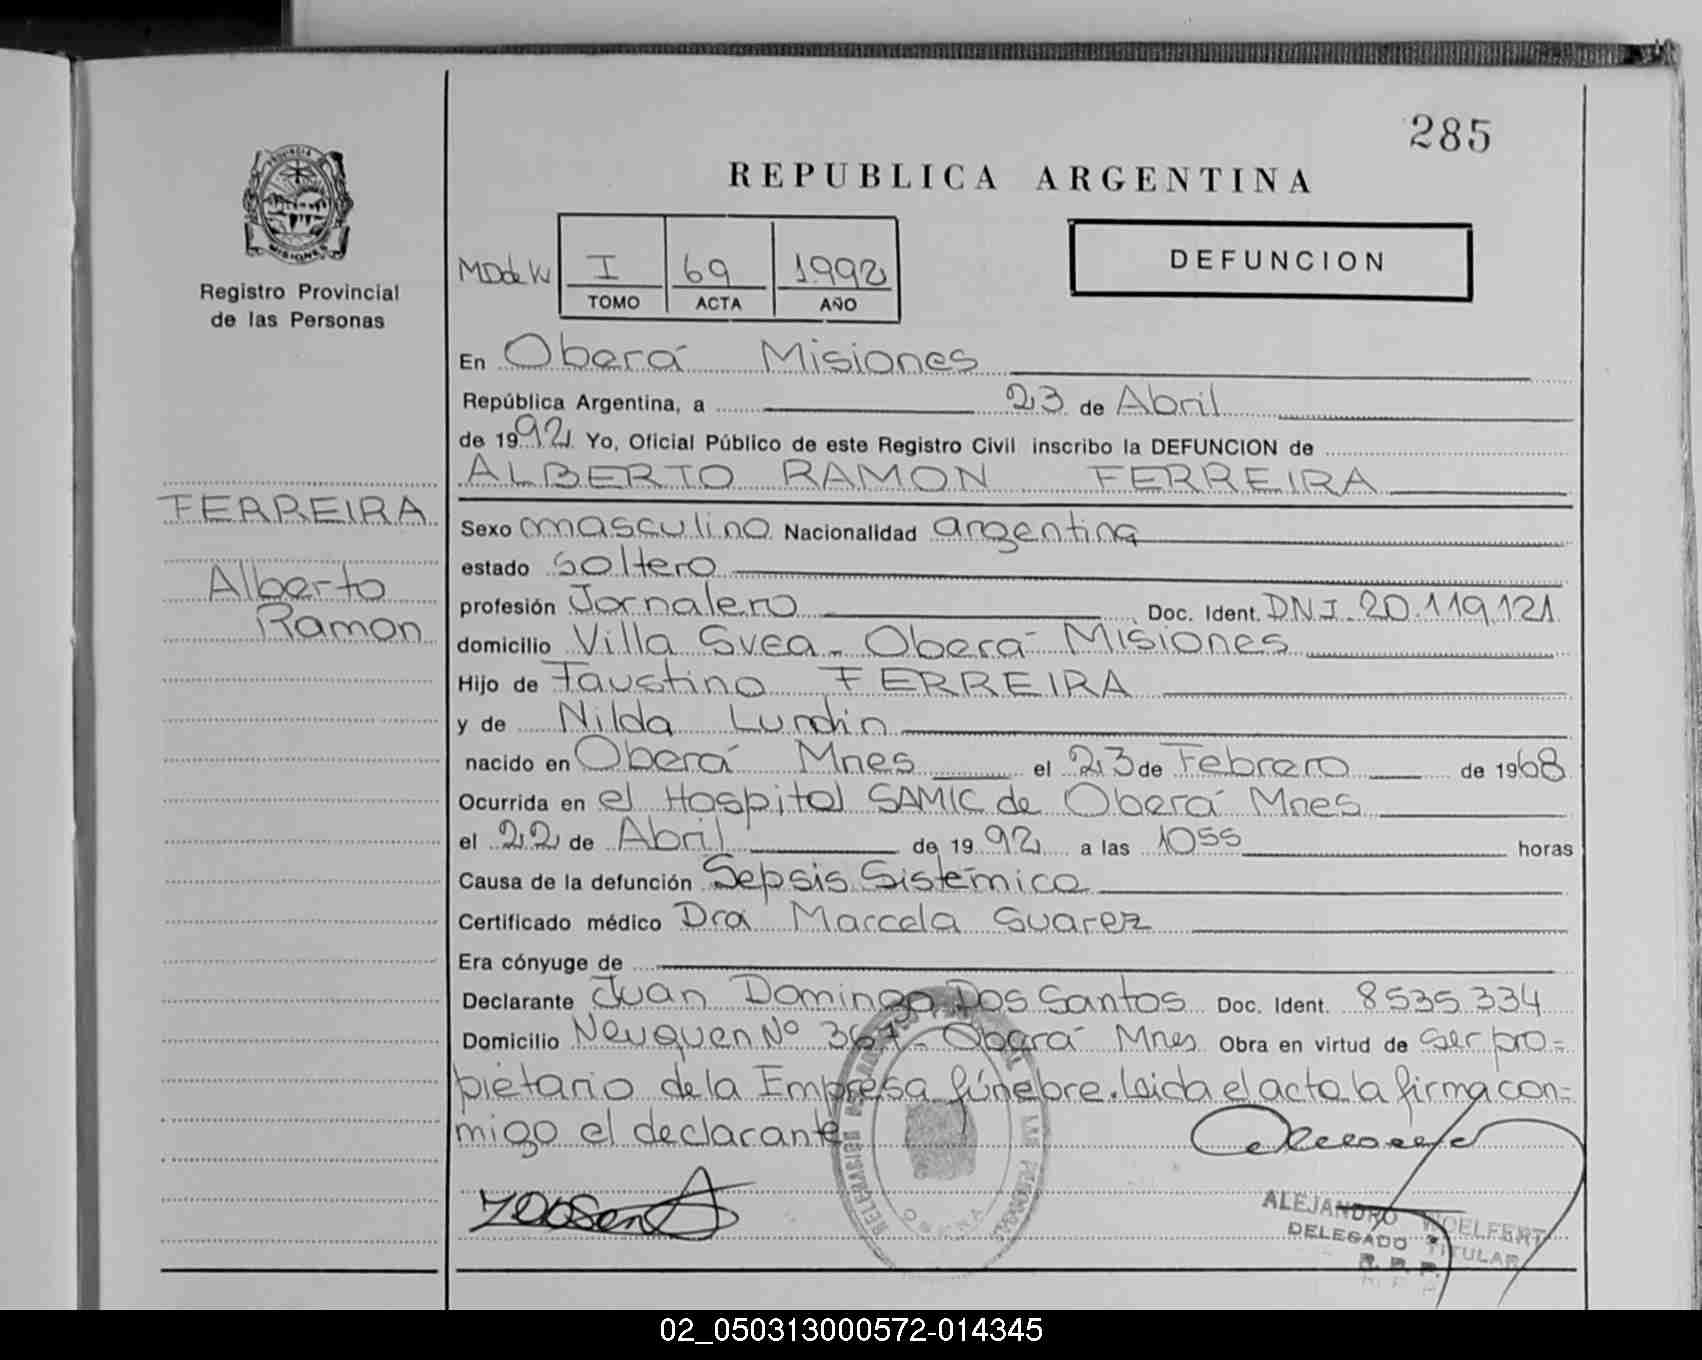 285
REPUBLICA ARGENTINA
PROVINCIA DE
MISIONES
Registro Provincial
de las Personas
I 69 1992
TOMO ACTA AÑO
DEFUNCION
En Oberá Misiones
República Argentina, a 23 de Abril
de 1992 Yo, Oficial Público de este Registro Civil inscribo la DEFUNCION de
ALBERTO RAMON FERREIRA
FERREIRA
Alberto
Ramon
Sexo masculino Nacionalidad argentina
estado soltero
profesión Jornalero Doc. Ident. DNI. 20.119.121
domicilio Villa Svea - Oberá Misiones
Hijo de Faustino FERREIRA
y de Nilda Lundin
nacido en Oberá Mnes el 23 de Febrero de 1968
Ocurrida en el Hospital SAMIC de Oberá Mnes
el 22 de Abril de 1992 a las 1055 horas
Causa de la defunción Sepsis Sistémica
Certificado médico Dra Marcela Suarez
Era cónyuge de
Declarante Juan Domingo Dos Santos Doc. Ident. 8535.334
Domicilio Neuquen Nº 367 - Oberá Mnes Obra en virtud de ser pro=
pietario de la Empresa fúnebre. Leida el acta la firma con=
migo el declarante
ALEJANDRO WOELFERT
DELEGADO TITULAR
R. P. P.
02_050313000572-014345